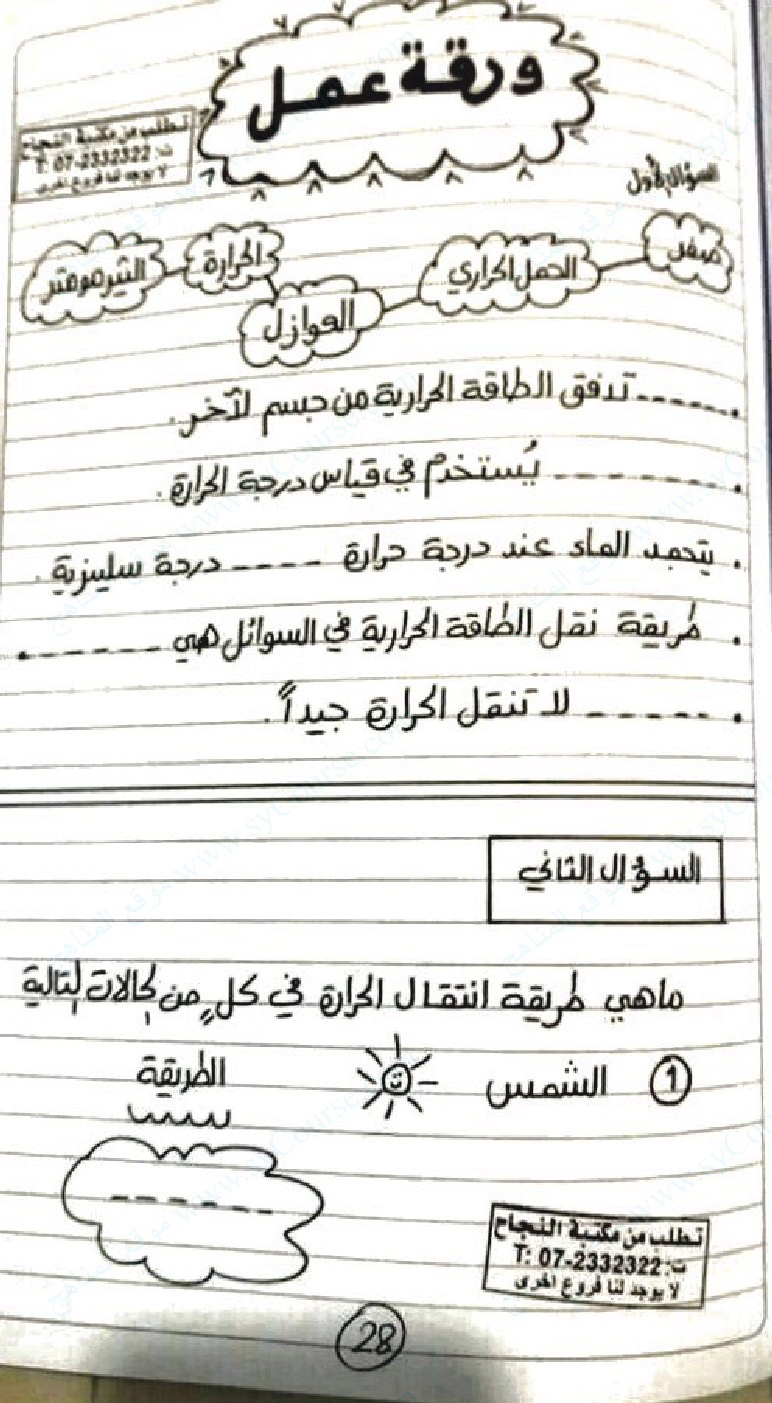 ورقة عمل
تطلب من مكتبة النجاح
ت: T: 07-2332322
لا يوجد لنا فروع اخرى
السؤال الأول
صفر
الحمل الحراري
العوازل
الحرارة
الثيرمومتر
. ------ تدفق الطاقة الحرارية من جسم لآخر.
. -------- يُستخدم في قياس درجة الحرارة.
. يتجمد الماء عند درجة حرارة ---- درجة سليزية.
. طريقة نقل الطاقة الحرارية في السوائل هي ------.
. ------ لا تنقل الحرارة جيداً.
السؤال الثاني
ماهي طريقة انتقال الحرارة في كلٍ من الحالات التالية
① الشمس
الطريقة
------
تطلب من مكتبة النجاح
ت: T: 07-2332322
لا يوجد لنا فروع اخرى
28